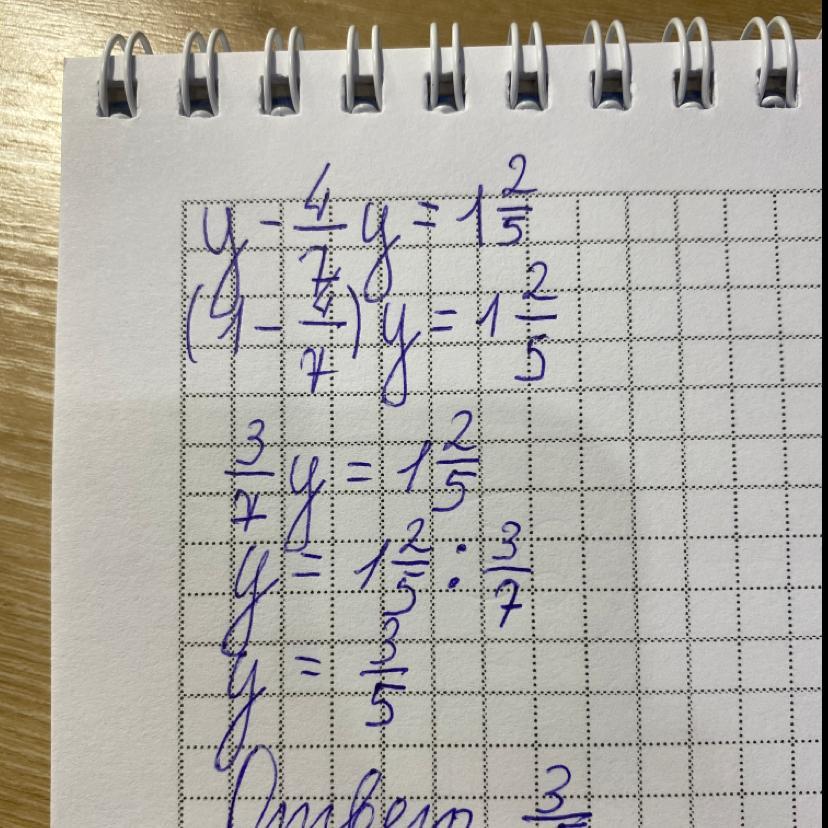 y - 4/7 y = 1 2/5
(1 - 4/7) y = 1 2/5
3/7 y = 1 2/5
y = 1 2/5 : 3/7
y = 3/5
Ответ 3/5